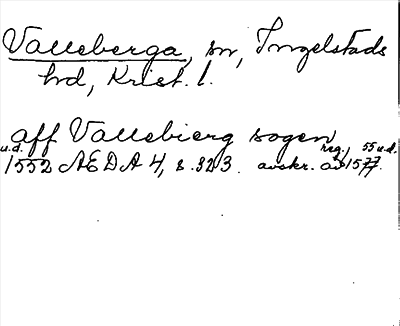 Valleberga, sn, Ingelstads
hd, Krist. l.
aff Vallebierg sogen
u.d. 1552 AEDA 4, s. 323. avskr. av reg. 1577. 55 u.d.